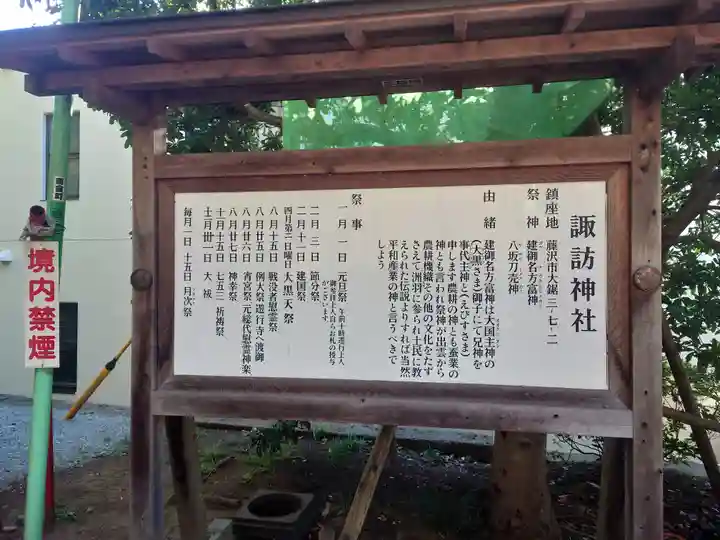 諏訪神社
鎮座地 藤沢市大鋸三-七-二
祭神 建御名方富神
八坂刀売神
由緒 建御名方富神は大国主神の
(大黒さま)御子にて兄神を
事代主神と(えびすさま)
申します農耕の神とも蚕業の
神とも言われ祭神が出雲から
農耕機織その他の文化をたず
さえて洲羽に参られ土民に教
えられた伝説よりすれば当然
平和産業の神と言うべきで
しよう
祭事
一月一日 元旦祭 午前十時遊行上人
御来拝上人自らお札の授与
がございます。
二月三日 節分祭
二月十一日 建国祭
四月第二日曜日 大黒天祭
八月十五日 戦没者慰霊祭
八月廿五日 例大祭遊行寺へ渡御
八月廿六日 宵宮祭 元総代慰霊神楽
八月廿七日 神幸祭
十一月十五日 七五三祈祷祭
十二月卅一日 大祓
毎月一日 十五日 月次祭
境内禁煙